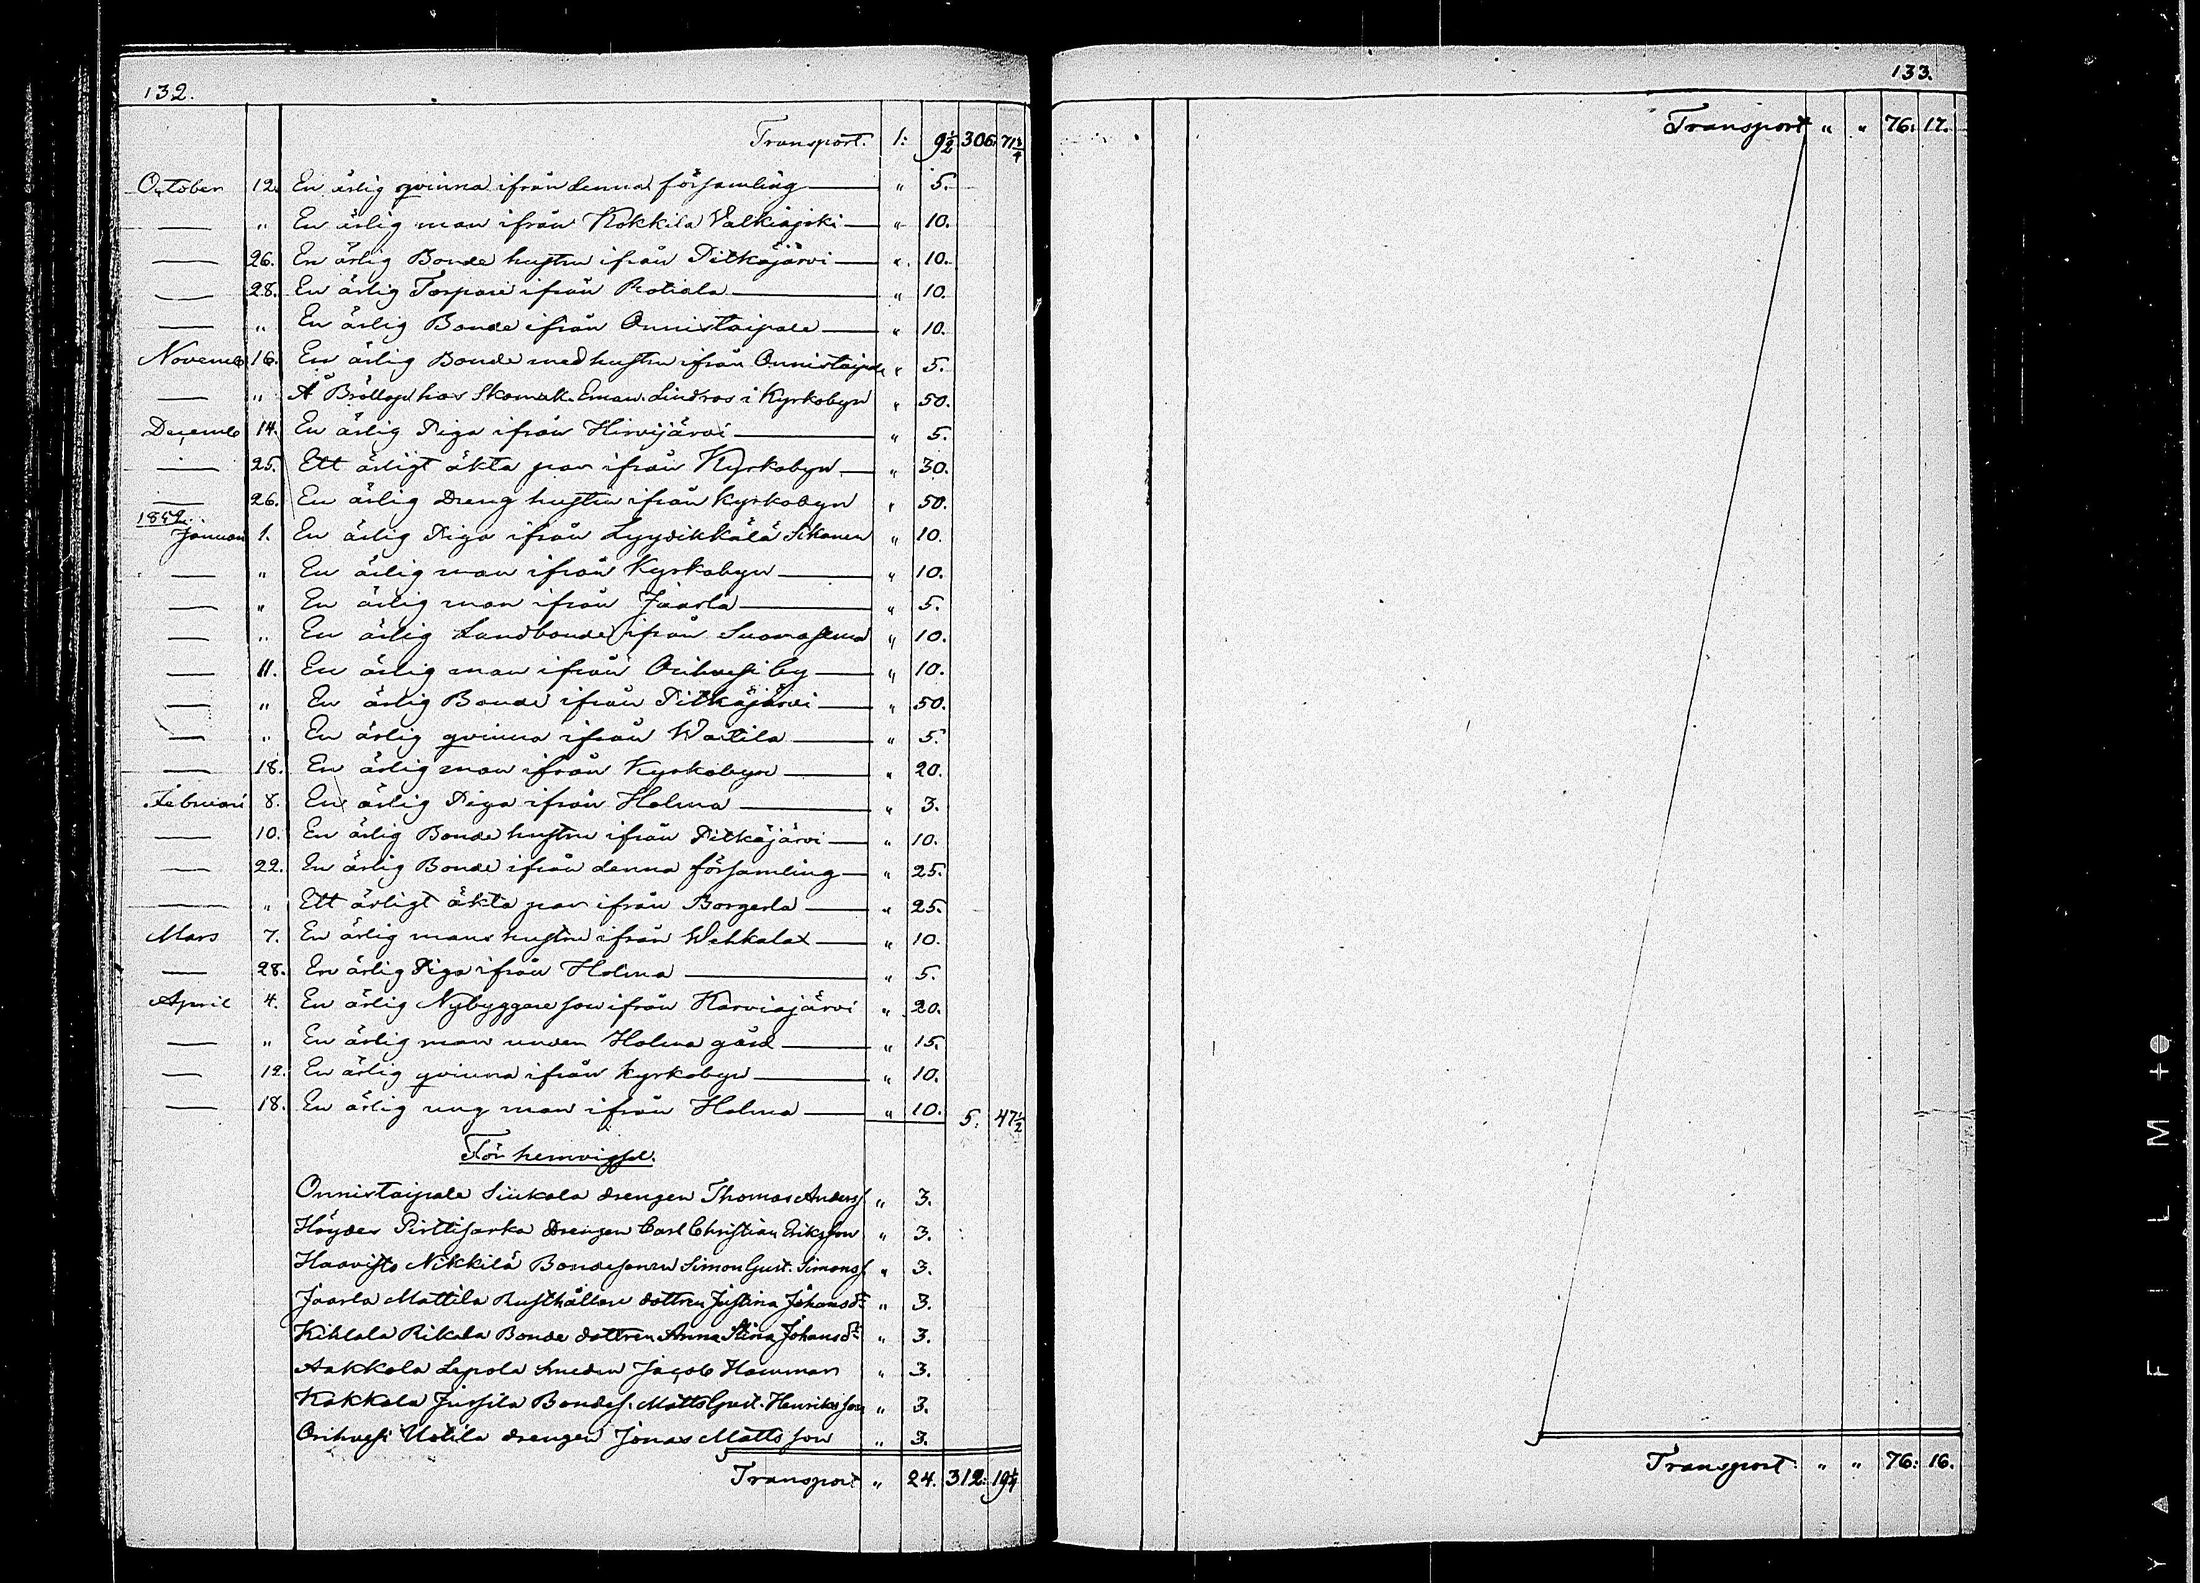 132.
Transport. 1: 9½ 306: 71¾
October 12. En ärlig qvinna ifrån denna församling " 5.
— " En ärlig man ifrån Kokkila Valkiajoki " 10.
— 26. En ärlig Bonde hustru ifrån Pitkäjärvi " 10.
— 28. En ärlig Torpare ifrån Rotiala " 10.
— " En ärlig Bonde ifrån Onnistaipale " 10.
Novemb 16. En ärlig Bonde med hustru ifrån Onnistaipale " 5.
— " Å Bröllop hos Skomak. Eman. Lindros i Kyrkobyn " 50.
Decemb 14. En ärlig Piga ifrån Hirvijärvi " 5.
— 25. Ett ärligt äkta par ifrån Kyrkobyn " 30.
— 26. En ärlig Dreng hustru ifrån Kyrkobyn " 50.
1852.
Januari 1. En ärlig Piga ifrån Lyydikkälä Sikanen " 10.
— " En ärlig man ifrån Kyrkobyn " 10.
— " En ärlig man ifrån Jaarla " 5.
— " En ärlig Landbonde ifrån " 10.
— 11. En ärlig man ifrån Orihvesi by " 10.
— " En ärlig Bonde ifrån Pitkäjärvi " 50.
— " En ärlig qvinna ifrån Woitila " 5.
— 18. En ärlig man ifrån Kyrkobyn " 20.
Februari 8. En ärlig Piga ifrån Holma " 3.
— 10. En ärlig Bonde hustru ifrån Pitkäjärvi " 10.
— 22. En ärlig Bonde ifrån denna församling " 25.
— " Ett ärligt äkta par ifrån Borgerla " 25.
Mars 7. En ärlig mans hustru ifrån Wehkalax " 10.
— 28. En ärlig Piga ifrån Holma " 5.
April 4. En ärlig Nybyggare son ifrån Karviajärvi " 20.
— " En ärlig man under Holma gård " 15.
— 12. En ärlig qvinna ifrån Kyrkobyn " 10.
— 18. En ärlig ung man ifrån Holma " 10. 5: 47½
För hemvigsel.
Onnistaipale Siukola drengen Thomas Anderss. " 3.
Höydes Pirttisarka Drengen Carl Christian Eriksson " 3.
Haavisto Nikkilä Bondesonen Simon Gust. Simonss. " 3.
Jaarla Mattila Rusthållare dottren Justina Johansdr " 3.
Kihlala Rikala Bonde dottren Anna Stina Johansdr " 3.
Aakkola Lepola Smeden Jacob Hamman " 3.
Kokkola Jussila Bondes. Matts Gust. Henriksson " 3.
Orihvesi Uotila drengen Jonas Mattsson " 3.
Transport " 24. 312: 19¼
133.
Transport " " 76: 17.
Transport: " " 76: 16.
YAFILM